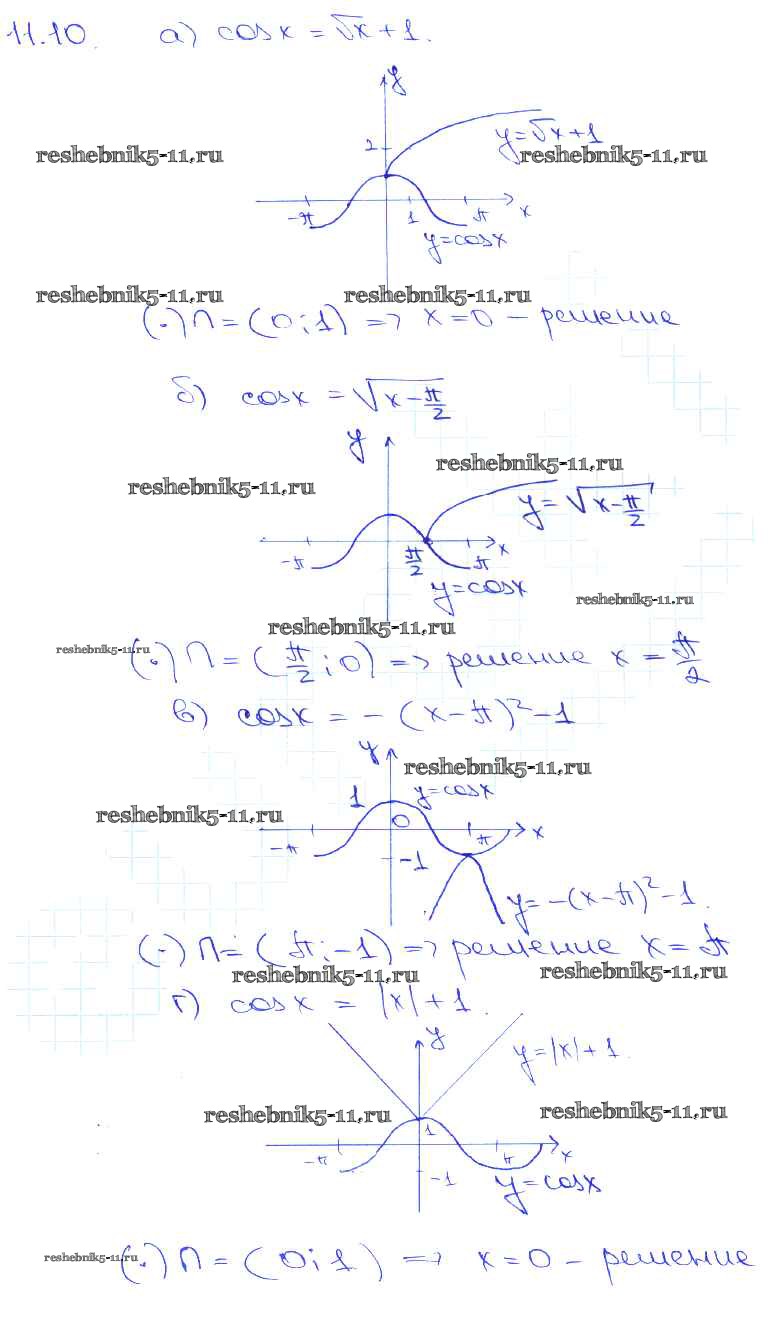 11.10. а) cosx = √x + 1.
y
2
y=√x+1
reshebnik5-11,ru reshebnik5-11,ru
-π 1 π x
y=cosx
reshebnik5-11,ru reshebnik5-11,ru
(·) П = (0;1) => x=0 – решение
б) cosx = √(x-π/2)
y
reshebnik5-11,ru
reshebnik5-11,ru
y=√(x-π/2)
-π π/2 π x
y=cosx
reshebnik5-11,ru
reshebnik5-11,ru
reshebnik5-11,ru
(·) П = (π/2;0) => решение x = π/2
в) cosx = -(x-π)²-1
y
reshebnik5-11,ru
1 y=cosx
reshebnik5-11,ru
0
-π π x
-1
y=-(x-π)²-1.
(·) П = (π;-1) => решение x=π
reshebnik5-11,ru reshebnik5-11,ru
г) cosx = |x|+1.
y
y=|x|+1.
reshebnik5-11,ru reshebnik5-11,ru
1
-π π x
-1
y=cosx
reshebnik5-11,ru
(·) П = (0;1) => x=0 – решение